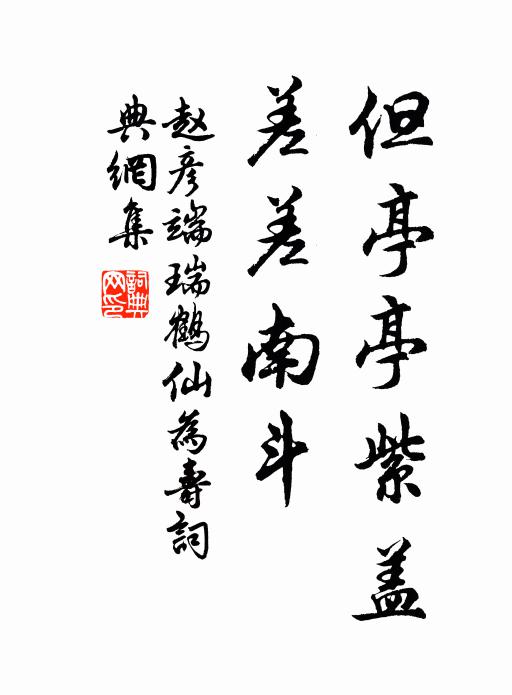 但亭亭紫盖
差差南斗
赵彦端瑞鹤仙為壽詞
典網集
詞典
网印